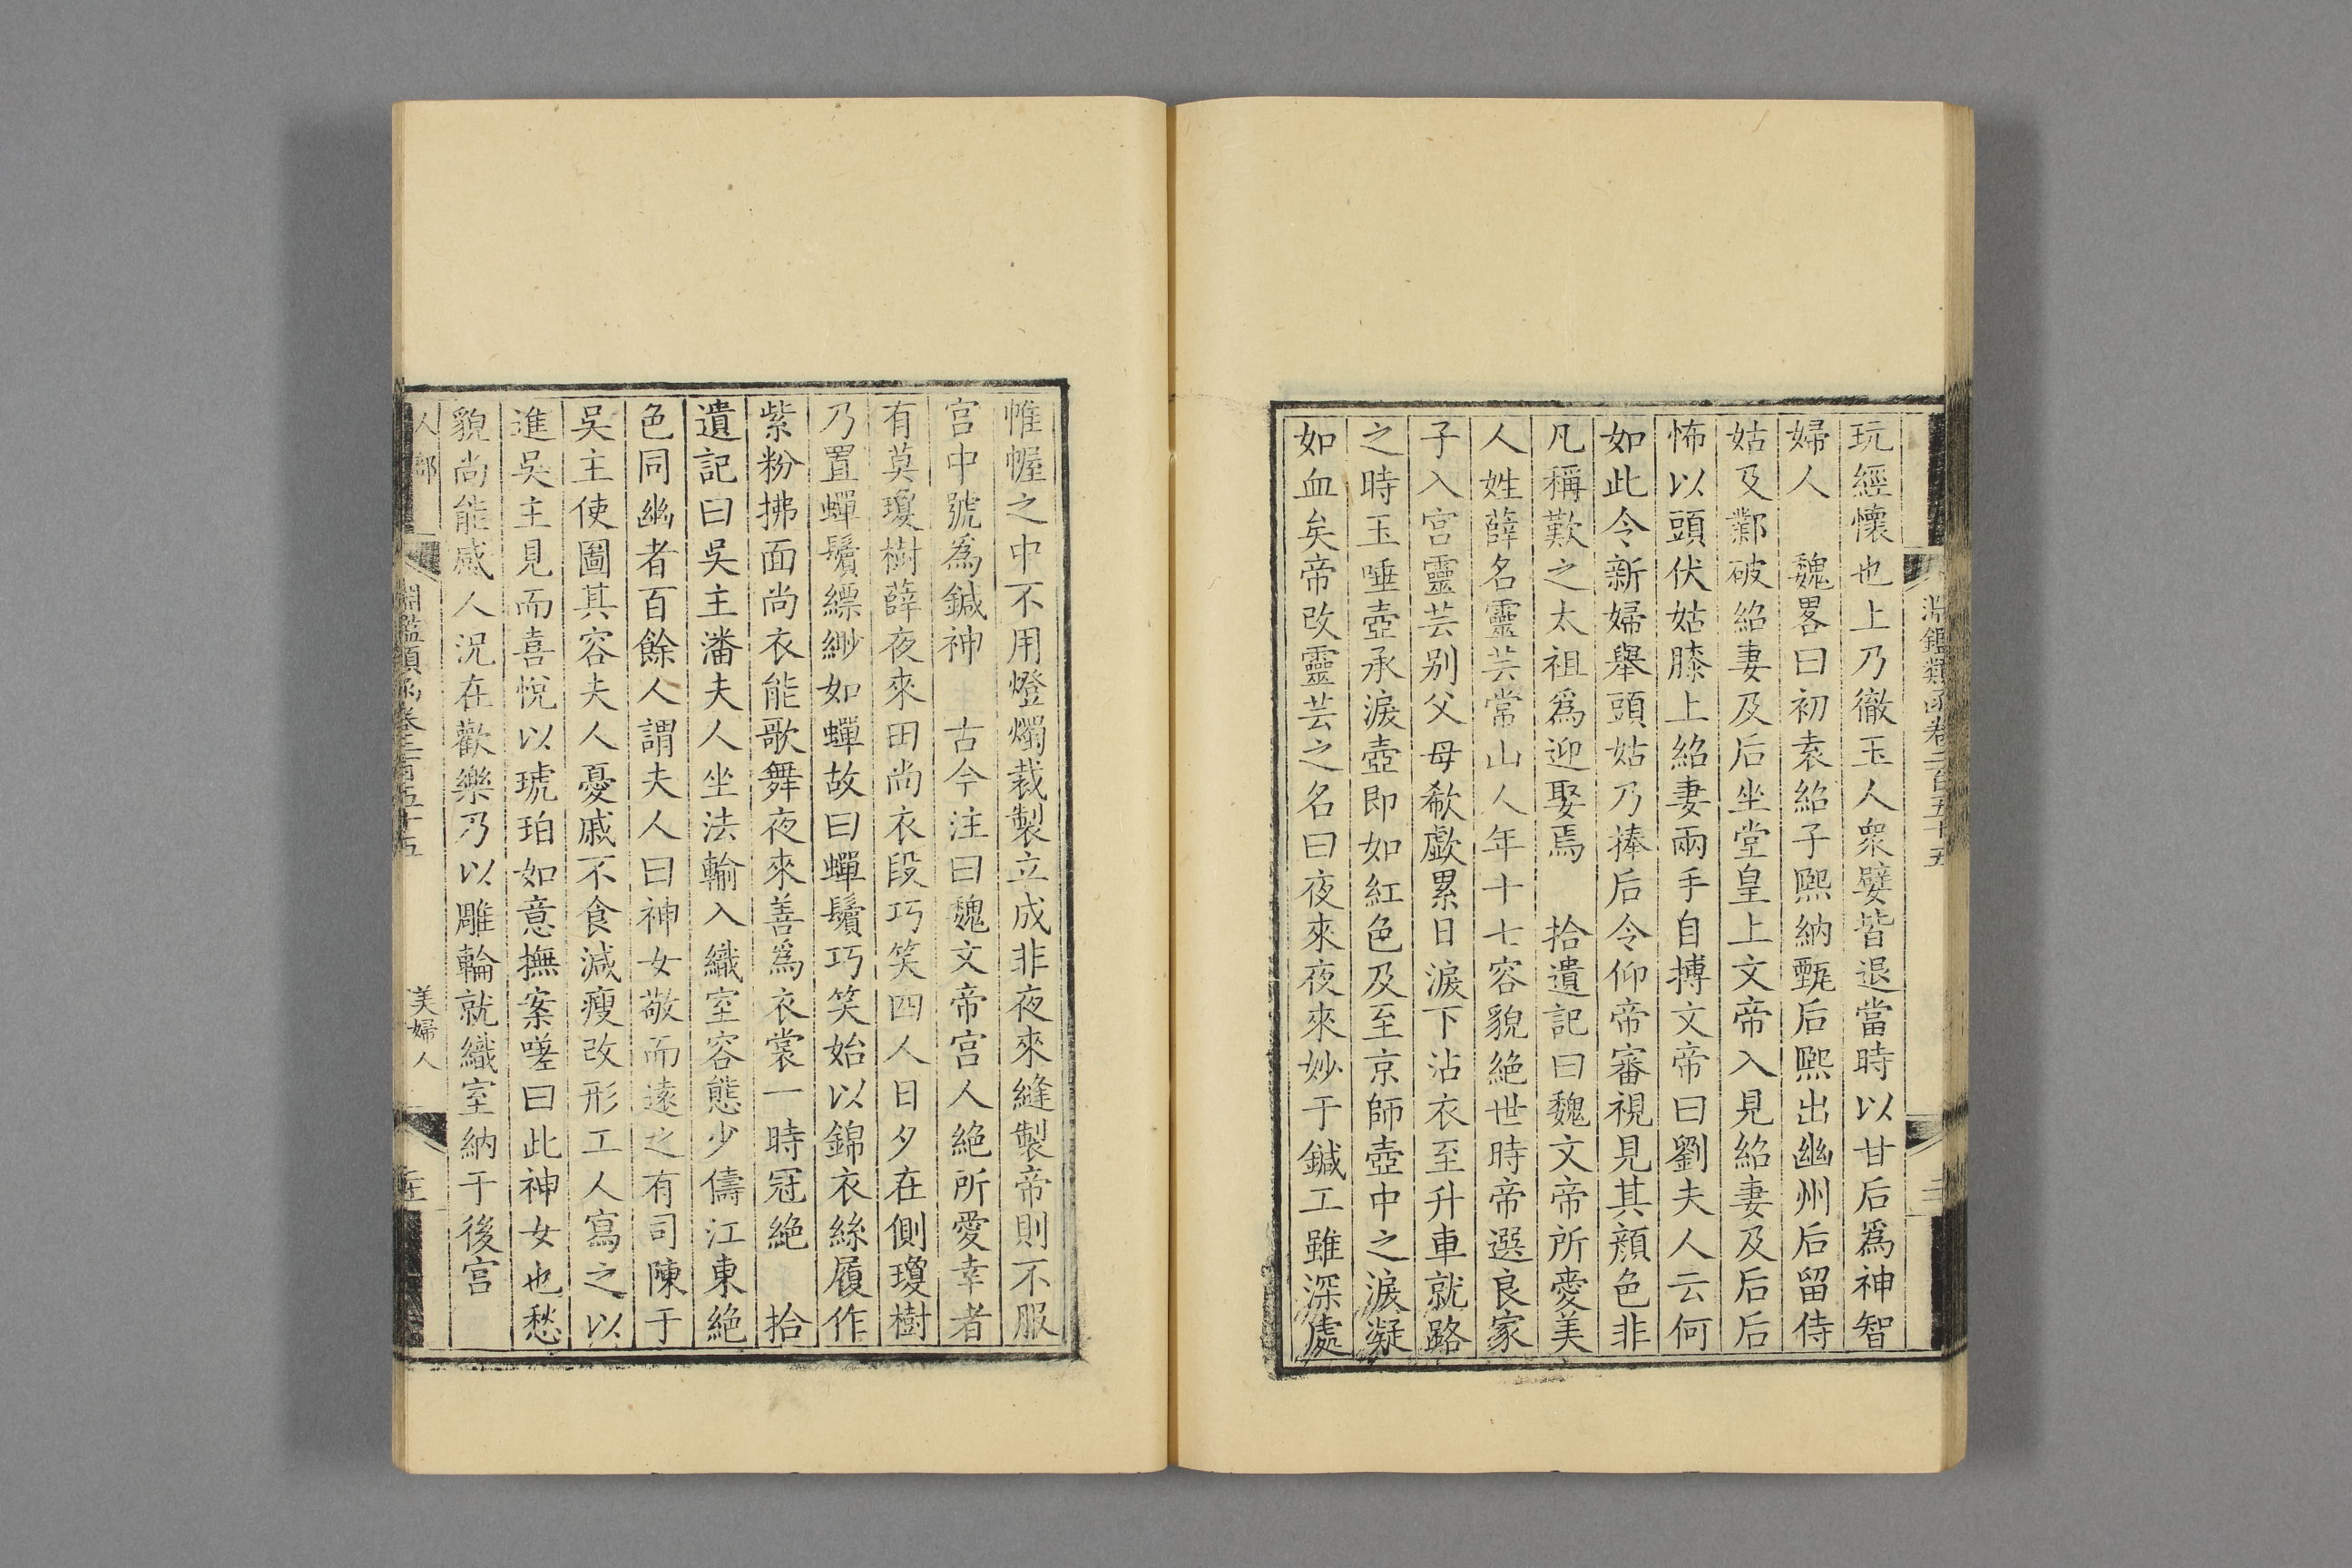 淵鑑類函卷二百五十五
玩經懷也上乃徹玉人衆嬖皆退當時以甘后爲神智
婦人　魏畧曰初袁紹子熙納甄后熙出幽州后留侍
姑及鄴破紹妻及后坐堂皇上文帝入見紹妻及后后
怖以頭伏姑膝上紹妻兩手自搏文帝曰劉夫人云何
如此令新婦舉頭姑乃捧后令仰帝審視見其顏色非
凡稱歎之太祖爲迎娶焉　拾遺記曰魏文帝所愛美
人姓薛名靈芸常山人年十七容貌絶世時帝選良家
子入宫靈芸别父母欷歔累日淚下沾衣至升車就路
之時玉唾壺承淚壺即如紅色及至京師壺中之淚凝
如血矣帝改靈芸之名曰夜來夜來妙于鍼工雖深處
帷幄之中不用燈燭裁製立成非夜來縫製帝則不服
宫中號爲鍼神　古今注曰魏文帝宫人絶所愛幸者
有莫瓊樹薛夜來田尚衣段巧笑四人日夕在側瓊樹
乃置蟬鬢縹緲如蟬故曰蟬鬢巧笑始以錦衣絲履作
紫粉拂面尚衣能歌舞夜來善爲衣裳一時冠絶　拾
遺記曰吳主潘夫人坐法輸入織室容態少儔江東絶
色同幽者百餘人謂夫人曰神女敬而遠之有司陳于
吳主使圖其容夫人憂戚不食減瘦改形工人寫之以
進吳主見而喜悅以琥珀如意撫案嗟曰此神女也愁
貌尚能感人況在歡樂乃以雕輪就織室納于後宫
人部　淵鑑類函卷二百五十五　美婦人